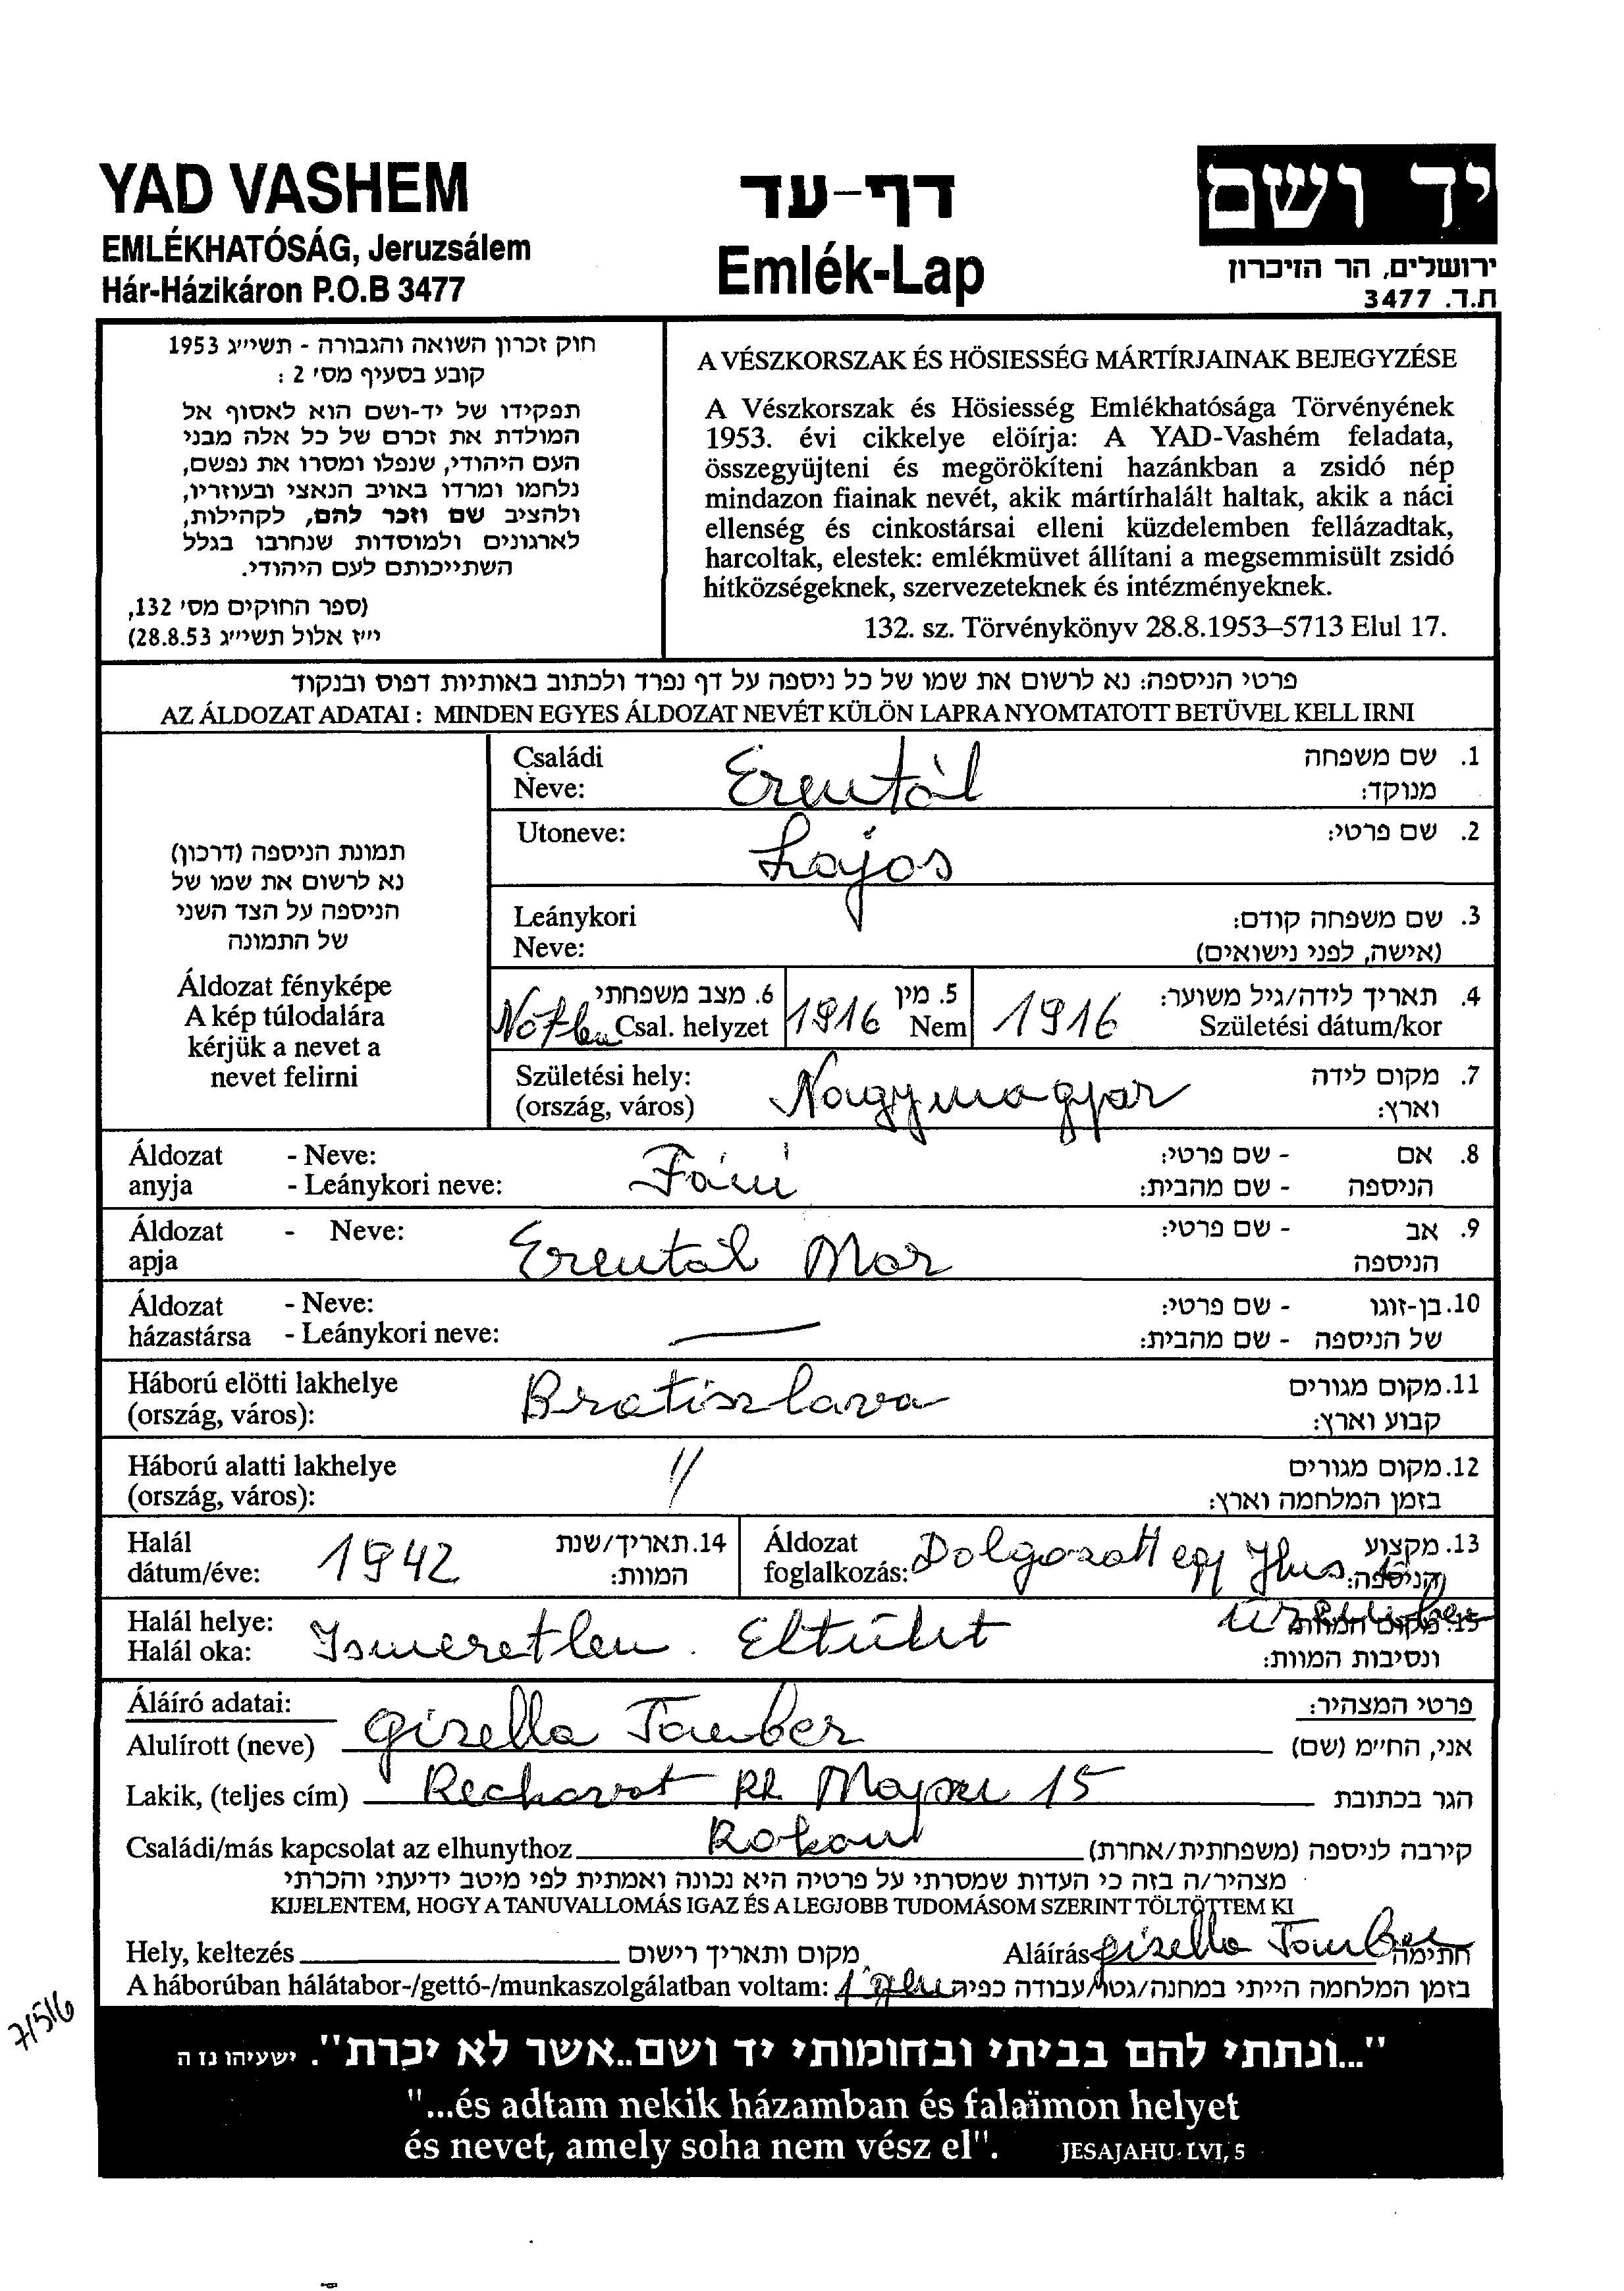 YAD VASHEM
EMLÉKHATÓSÁG, Jeruzsálem
Hár-Házikáron P.O.B 3477
דף-עד
Emlék-Lap
יד ושם
ירושלים, הר הזיכרון
ת.ד. 3477
חוק זכרון השואה והגבורה - תשי״ג 1953
קובע בסעיף מס׳ 2 :
תפקידו של יד-ושם הוא לאסוף אל
המולדת את זכרם של כל אלה מבני
העם היהודי, שנפלו ומסרו את נפשם,
נלחמו ומרדו באויב הנאצי ובעוזריו,
ולהציב שם וזכר להם, לקהילות,
לארגונים ולמוסדות שנחרבו בגלל
השתייכותם לעם היהודי.
(ספר החוקים מס׳ 132,
י״ז אלול תשי״ג 28.8.53)
A VÉSZKORSZAK ÉS HÖSIESSÉG MÁRTÍRJAINAK BEJEGYZÉSE
A Vészkorszak és Hösiesség Emlékhatósága Törvényének
1953. évi cikkelye elöírja: A YAD-Vashém feladata,
összegyüjteni és megörökíteni hazánkban a zsidó nép
mindazon fiainak nevét, akik mártírhalált haltak, akik a náci
ellenség és cinkostársai elleni küzdelemben fellázadtak,
harcoltak, elestek: emlékmüvet állítani a megsemmisült zsidó
hitközségeknek, szervezeteknek és intézményeknek.
132. sz. Törvénykönyv 28.8.1953–5713 Elul 17.
פרטי הניספה: נא לרשום את שמו של כל ניספה על דף נפרד ולכתוב באותיות דפוס ובנקוד
AZ ÁLDOZAT ADATAI : MINDEN EGYES ÁLDOZAT NEVÉT KÜLÖN LAPRA NYOMTATOTT BETÜVEL KELL IRNI
תמונת הניספה (דרכון)
נא לרשום את שמו של
הניספה על הצד השני
של התמונה
Áldozat fényképe
A kép túlodalára
kérjük a nevet a
nevet felirni
Családi Neve: Erentál 1. שם משפחה מנוקד:
Utoneve: Lajos 2. שם פרטי:
Leánykori Neve: 3. שם משפחה קודם: (אישה, לפני נישואים)
Nőtlen 6. מצב משפחתי Csal. helyzet 1916 5. מין Nem 1916 4. תאריך לידה/גיל משוער: Születési dátum/kor
Születési hely: (ország, város) Nagymagyar 7. מקום לידה וארץ:
Áldozat anyja - Neve: - Leánykori neve: Fáni 8. אם הניספה - שם פרטי: - שם מהבית:
Áldozat apja - Neve: Erentál Mor 9. אב הניספה - שם פרטי:
Áldozat házastársa - Neve: - Leánykori neve: — 10. בן-זוגו של הניספה - שם פרטי: - שם מהבית:
Háború elötti lakhelye (ország, város): Bratiszlava 11. מקום מגורים קבוע וארץ:
Háború alatti lakhelye (ország, város): 〃 12. מקום מגורים בזמן המלחמה וארץ:
Halál dátum/éve: 1942 14. תאריך/שנת המוות: Áldozat foglalkozás: Dolgozott egy Hus üzemben 13. מקצוע הניספה:
Halál helye: Halál oka: Ismeretlen. Eltűnt 15. מקום המוות ונסיבות המוות:
Áláíró adatai: פרטי המצהיר:
Alulírott (neve) Gizella Tauber אני, החי״מ (שם)
Lakik, (teljes cím) Rechavot Rh. 15 הגר בכתובת
Családi/más kapcsolat az elhunythoz Rokon קירבה לניספה (משפחתית/אחרת)
מצהיר/ה בזה כי העדות שמסרתי על פרטיה היא נכונה ואמתית לפי מיטב ידיעתי והכרתי
KIJELENTEM, HOGY A TANUVALLOMÁS IGAZ ÉS A LEGJOBB TUDOMÁSOM SZERINT TÖLTÖTTEM KI
Hely, keltezés מקום ותאריך רישום Aláírás Gizella Tauber חתימה
A háborúban hálátabor-/gettó-/munkaszolgálatban voltam: Igen בזמן המלחמה הייתי במחנה/גטו/עבודה כפיה
7/516
"...ונתתי להם בביתי ובחומותי יד ושם..אשר לא יכרת". ישעיהו נז ה
"...és adtam nekik házamban és falaïmon helyet
és nevet, amely soha nem vész el". JESAJAHU: LVI, 5